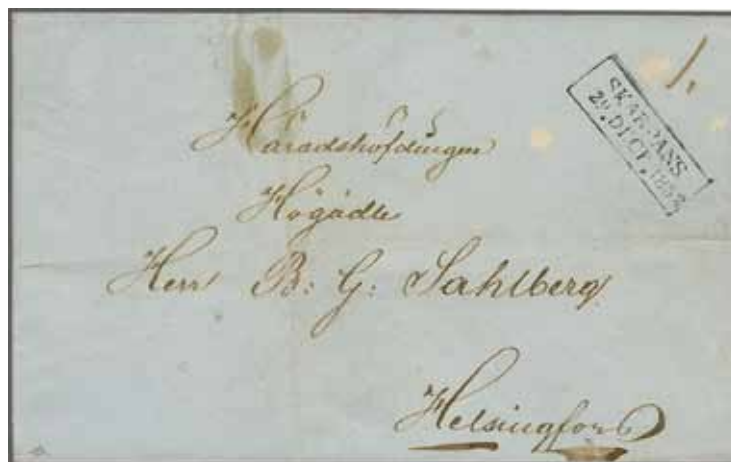 SKARPANS
29. DECE. 1853
1.
Häradshöfdingen
Högädle
Herr B: G: Sahlberg
Helsingfors